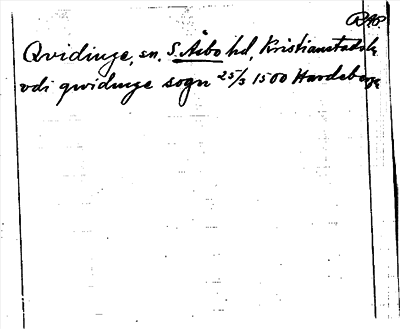 Qvidinge, sn. S. Åsbo hd, Kristianstads l.
vdi qwidinge sogn 25/3 1500 Hardeberga